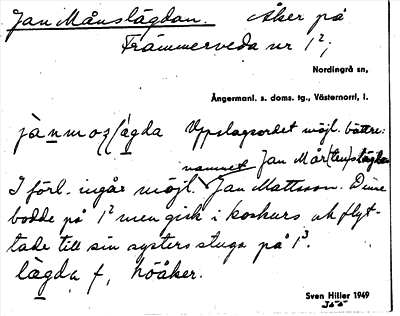 Jan Månslägdan. Åker på
Främmerveda nr 1²;
Nordingrå sn,
Ångermanl. s. doms. tg., Västernorrl, l.
jànmoz(lägda Uppslagsordet möjl. bättre:
Jan Mår(ten)slägdan
I förl. ingår möjl. namnet Jan Mattsson. Denne
bodde på 1² men gick i konkurs och flyt-
tade till sin systers stuga på 1³.
lägda f, höåker.
Sven Hiller 1949